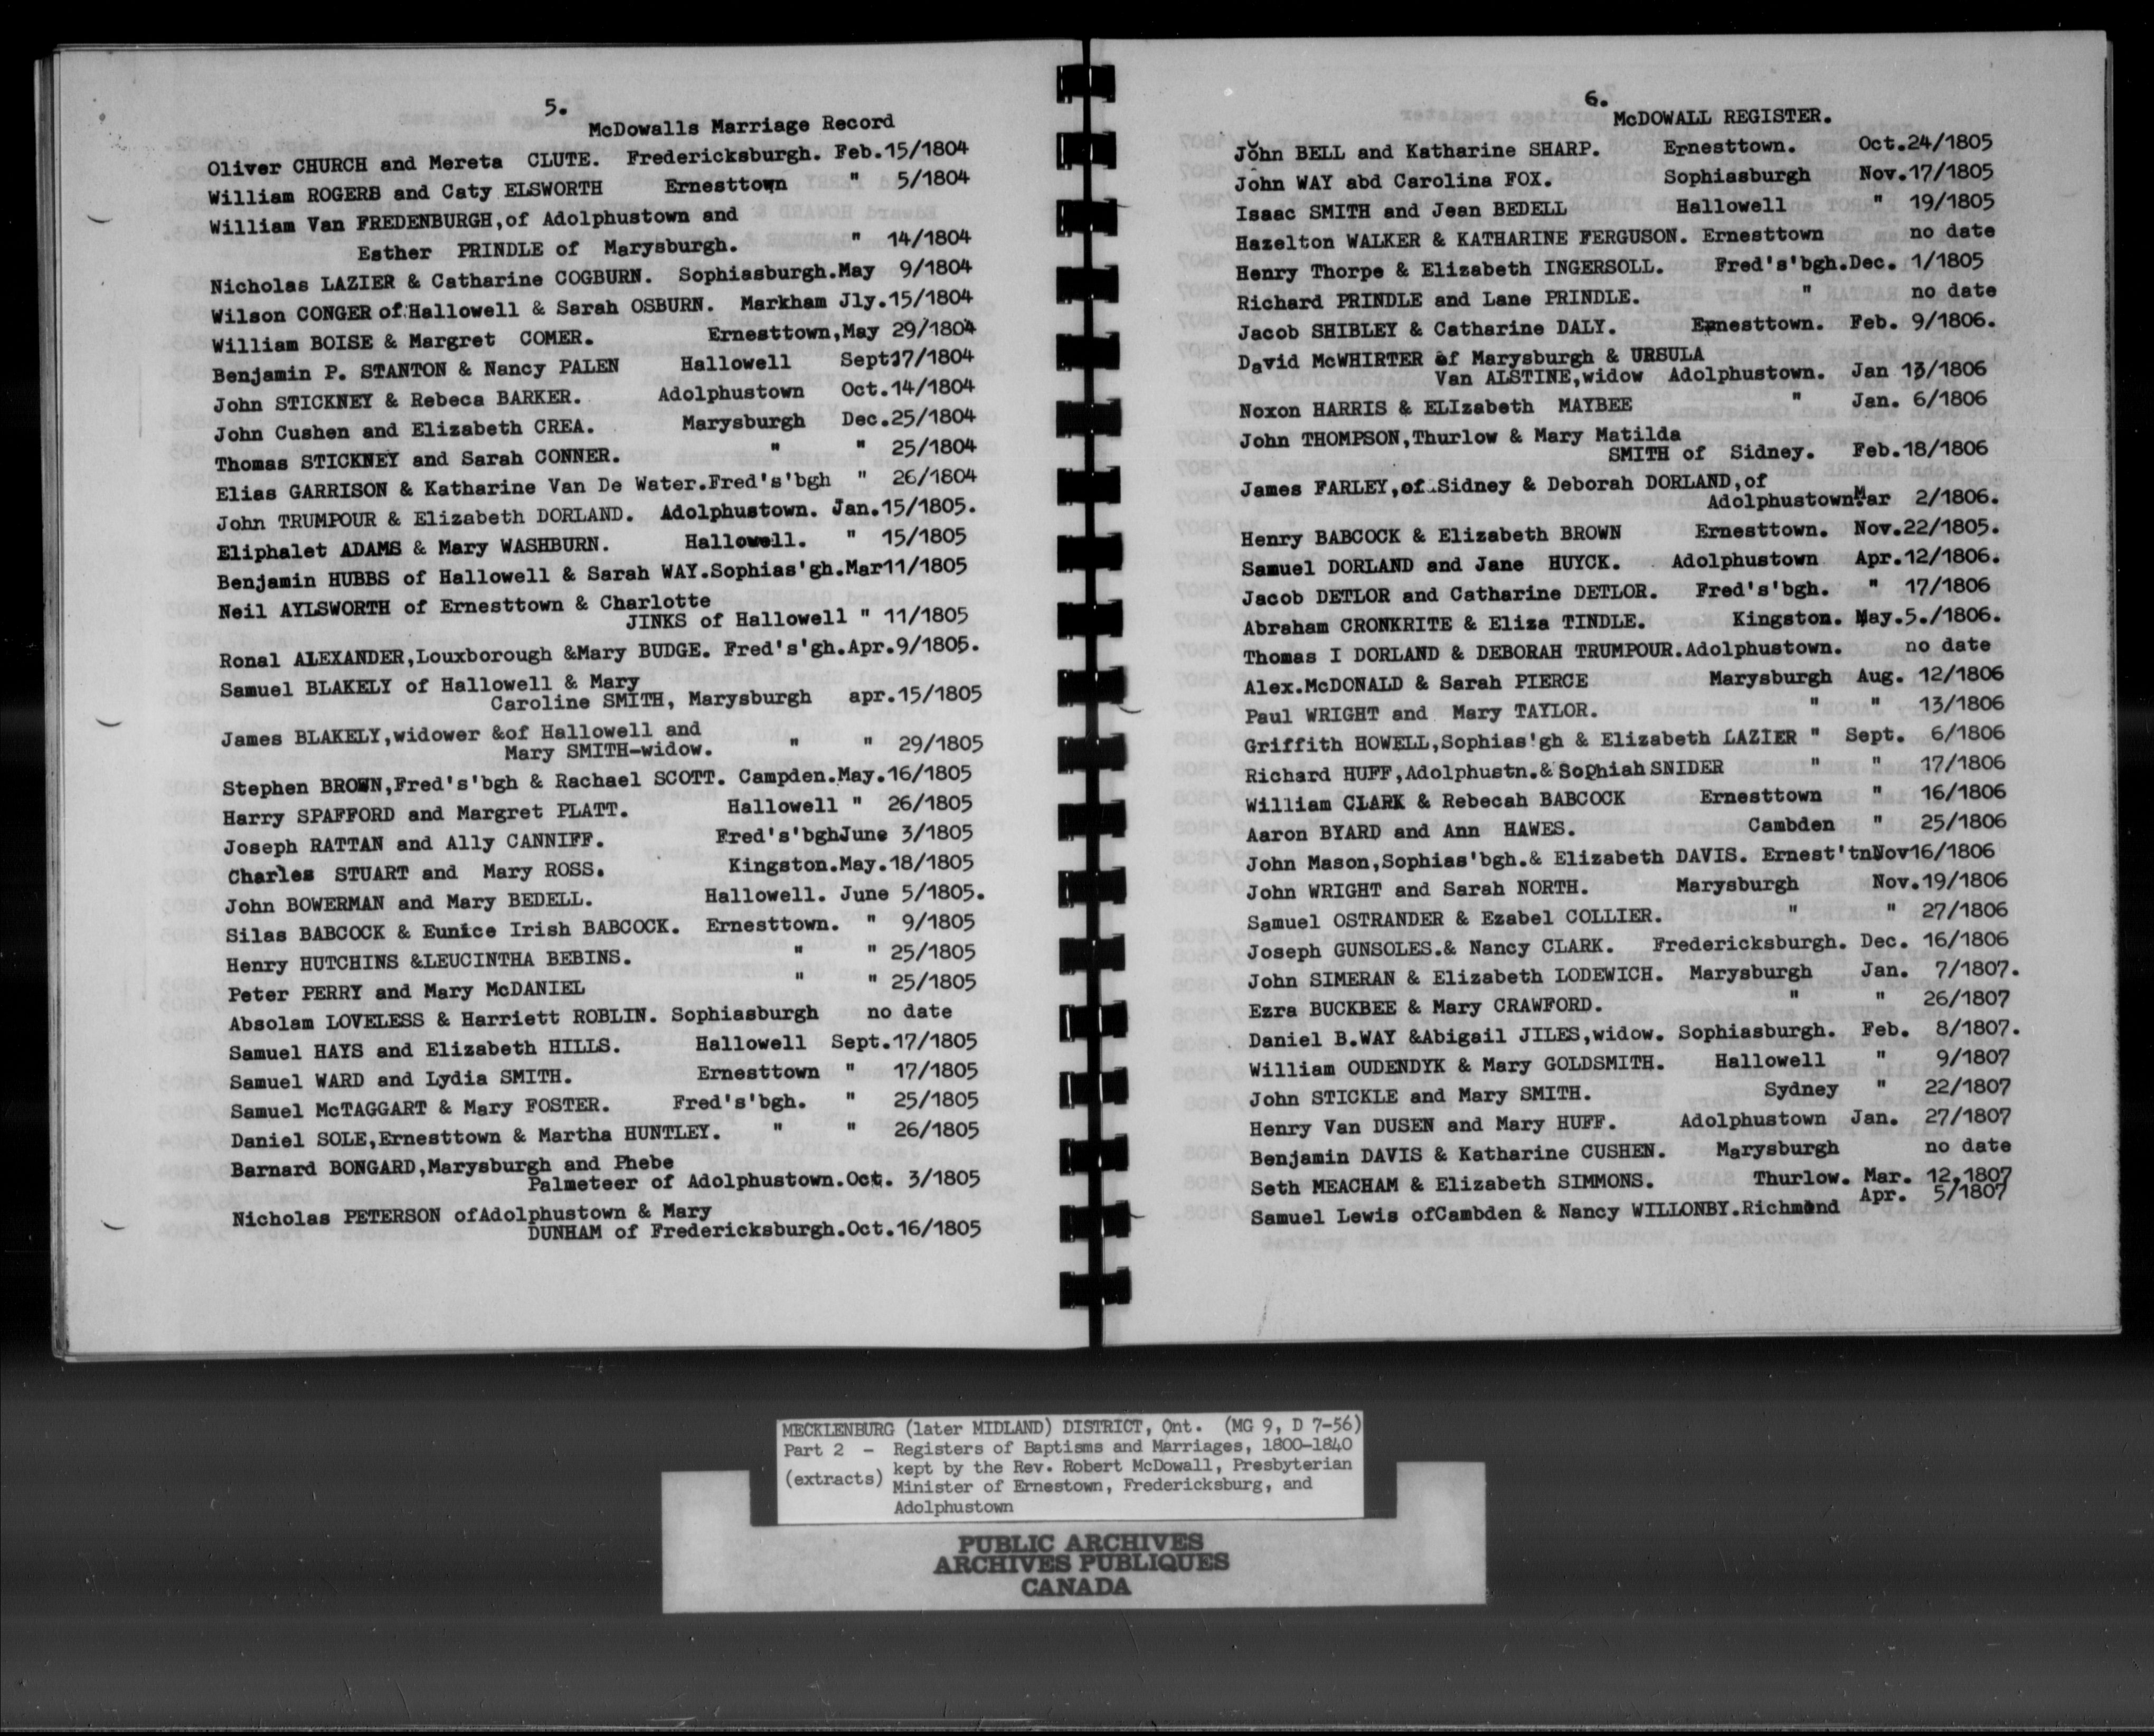 5.
McDowalls Marriage Record
Oliver CHURCH and Mereta CLUTE. Fredericksburgh. Feb.15/1804
William ROGERS and Caty ELSWORTH Ernesttown " 5/1804
William Van FREDENBURGH,of Adolphustown and
Esther PRINDLE of Marysburgh. " 14/1804
Nicholas LAZIER & Catharine COGBURN. Sophiasburgh.May 9/1804
Wilson CONGER of Hallowell & Sarah OSBURN. Markham Jly.15/1804
William BOISE & Margret COMER. Ernesttown,May 29/1804
Benjamin P. STANTON & Nancy PALEN Hallowell Sept17/1804
John STICKNEY & Rebeca BARKER. Adolphustown Oct.14/1804
John Cushen and Elizabeth CREA. Marysburgh Dec.25/1804
Thomas STICKNEY and Sarah CONNER. " " 25/1804
Elias GARRISON & Katharine Van De Water.Fred's'bgh " 26/1804
John TRUMPOUR & Elizabeth DORLAND. Adolphustown. Jan.15/1805.
Eliphalet ADAMS & Mary WASHBURN. Hallowell. " 15/1805
Benjamin HUBBS of Hallowell & Sarah WAY.Sophias'gh.Mar11/1805
Neil AYLSWORTH of Ernesttown & Charlotte
JINKS of Hallowell " 11/1805
Ronal ALEXANDER,Louxborough &Mary BUDGE. Fred's'gh.Apr.9/1805.
Samuel BLAKELY of Hallowell & Mary
Caroline SMITH, Marysburgh apr.15/1805
James BLAKELY,widower &of Hallowell and
Mary SMITH-widow. " " 29/1805
Stephen BROWN,Fred's'bgh & Rachael SCOTT. Campden.May.16/1805
Harry SPAFFORD and Margret PLATT. Hallowell " 26/1805
Joseph RATTAN and Ally CANNIFF. Fred's'bghJune 3/1805
Charles STUART and Mary ROSS. Kingston.May.18/1805
John BOWERMAN and Mary BEDELL. Hallowell. June 5/1805.
Silas BABCOCK & Eunice Irish BABCOCK. Ernesttown. " 9/1805
Henry HUTCHINS &LEUCINTHA BEBINS. " " 25/1805
Peter PERRY and Mary McDANIEL " " 25/1805
Absolam LOVELESS & Harriett ROBLIN. Sophiasburgh no date
Samuel HAYS and Elizabeth HILLS. Hallowell Sept.17/1805
Samuel WARD and Lydia SMITH. Ernesttown " 17/1805
Samuel McTAGGART & Mary FOSTER. Fred's'bgh. " 25/1805
Daniel SOLE,Ernesttown & Martha HUNTLEY. " " 26/1805
Barnard BONGARD,Marysburgh and Phebe
Palmeteer of Adolphustown.Oct. 3/1805
Nicholas PETERSON ofAdolphustown & Mary
DUNHAM of Fredericksburgh.Oct.16/1805
6.
McDOWALL REGISTER.
John BELL and Katharine SHARP. Ernesttown. Oct.24/1805
John WAY abd Carolina FOX. Sophiasburgh Nov.17/1805
Isaac SMITH and Jean BEDELL Hallowell " 19/1805
Hazelton WALKER & KATHARINE FERGUSON. Ernesttown no date
Henry Thorpe & Elizabeth INGERSOLL. Fred's'bgh.Dec. 1/1805
Richard PRINDLE and Lane PRINDLE. " no date
Jacob SHIBLEY & Catharine DALY. Ernesttown. Feb. 9/1806.
David McWHIRTER of Marysburgh & URSULA
Van ALSTINE,widow Adolphustown. Jan 13/1806
Noxon HARRIS & ELIzabeth MAYBEE " Jan. 6/1806
John THOMPSON,Thurlow & Mary Matilda
SMITH of Sidney. Feb.18/1806
James FARLEY,of Sidney & Deborah DORLAND,of
Adolphustown.Mar 2/1806.
Henry BABCOCK & Elizabeth BROWN Ernesttown. Nov.22/1805.
Samuel DORLAND and Jane HUYCK. Adolphustown Apr.12/1806.
Jacob DETLOR and Catharine DETLOR. Fred's'bgh. " 17/1806
Abraham CRONKRITE & Eliza TINDLE. Kingston. May.5./1806.
Thomas I DORLAND & DEBORAH TRUMPOUR.Adolphustown. no date
Alex.McDONALD & Sarah PIERCE Marysburgh Aug. 12/1806
Paul WRIGHT and Mary TAYLOR. " " 13/1806
Griffith HOWELL,Sophias'gh & Elizabeth LAZIER " Sept. 6/1806
Richard HUFF,Adolphustn.& Sophiah SNIDER " " 17/1806
William CLARK & Rebecah BABCOCK Ernesttown " 16/1806
Aaron BYARD and Ann HAWES. Cambden " 25/1806
John Mason,Sophias'bgh.& Elizabeth DAVIS. Ernest'tnNov16/1806
John WRIGHT and Sarah NORTH. Marysburgh Nov.19/1806
Samuel OSTRANDER & Ezabel COLLIER. " " 27/1806
Joseph GUNSOLES.& Nancy CLARK. Fredericksburgh. Dec. 16/1806
John SIMERAN & Elizabeth LODEWICH. Marysburgh Jan. 7/1807.
Ezra BUCKBEE & Mary CRAWFORD. " " 26/1807
Daniel B.WAY &Abigail JILES,widow. Sophiasburgh. Feb. 8/1807.
William OUDENDYK & Mary GOLDSMITH. Hallowell " 9/1807
John STICKLE and Mary SMITH. Sydney " 22/1807
Henry Van DUSEN and Mary HUFF. Adolphustown Jan. 27/1807
Benjamin DAVIS & Katharine CUSHEN. Marysburgh no date
Seth MEACHAM & Elizabeth SIMMONS. Thurlow. Mar. 12,1807
Samuel Lewis ofCambden & Nancy WILLONBY.Richmond Apr. 5/1807
MECKLENBURG (later MIDLAND) DISTRICT, Ont. (MG 9, D 7-56)
Part 2 - Registers of Baptisms and Marriages, 1800-1840
(extracts) kept by the Rev. Robert McDowall, Presbyterian
Minister of Ernestown, Fredericksburg, and
Adolphustown
PUBLIC ARCHIVES
ARCHIVES PUBLIQUES
CANADA